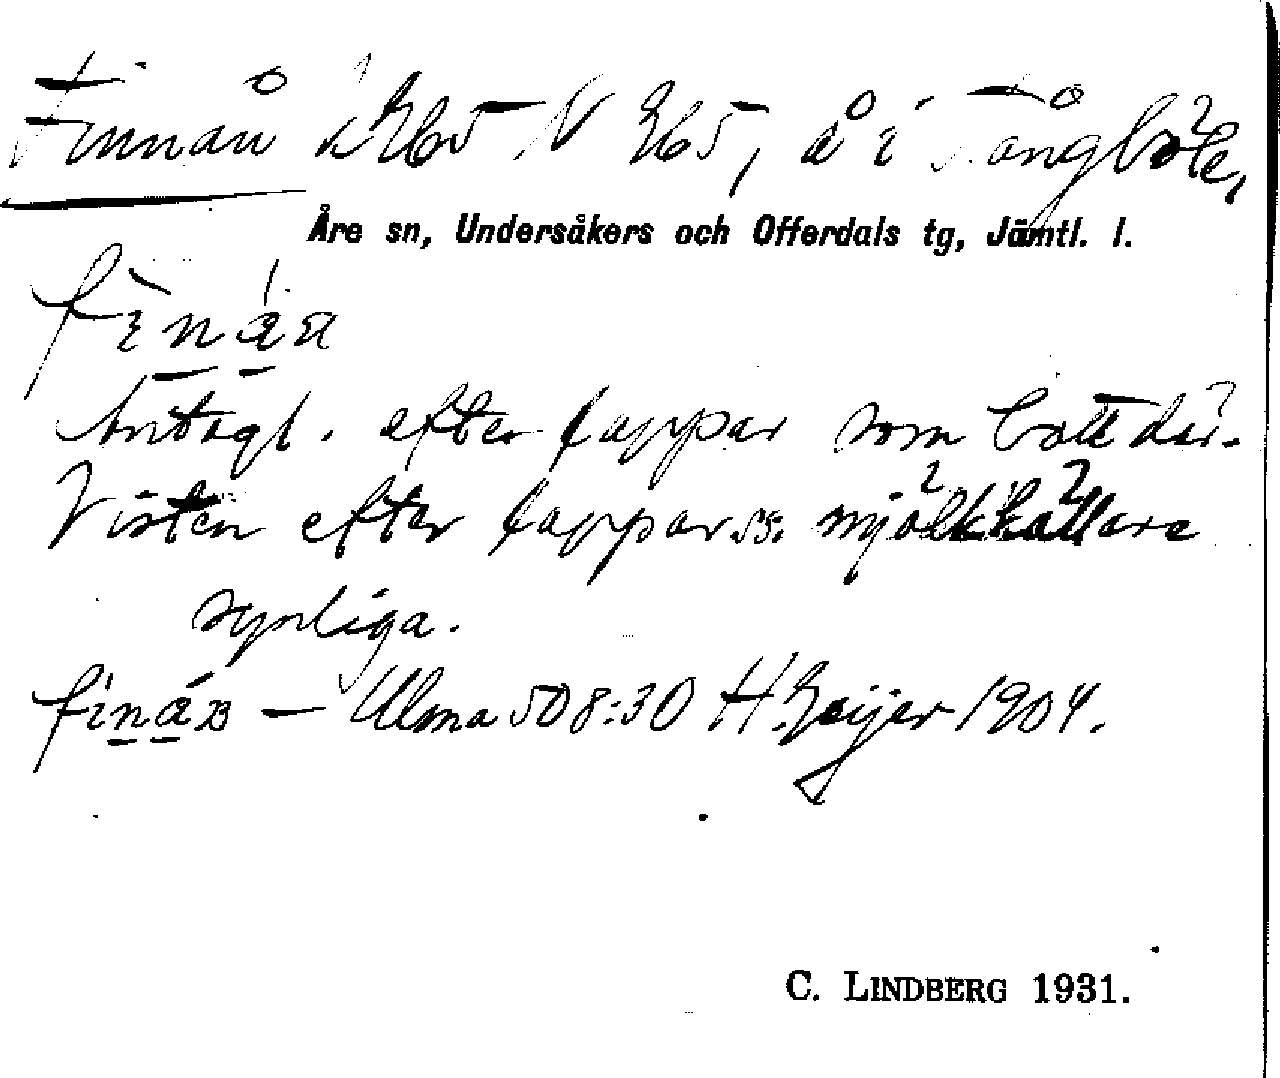 Finnån k 265 N 265, å i Tångböle,
Åre sn, Undersåkers och Offerdals tg, Jämtl. l.
Antagl. efter lappar som bott där.
Visten efter lappar ss. mjölkkällare
synliga.
— Ulma 508:30 H. Geijer 1904.
C. LINDBERG 1931.